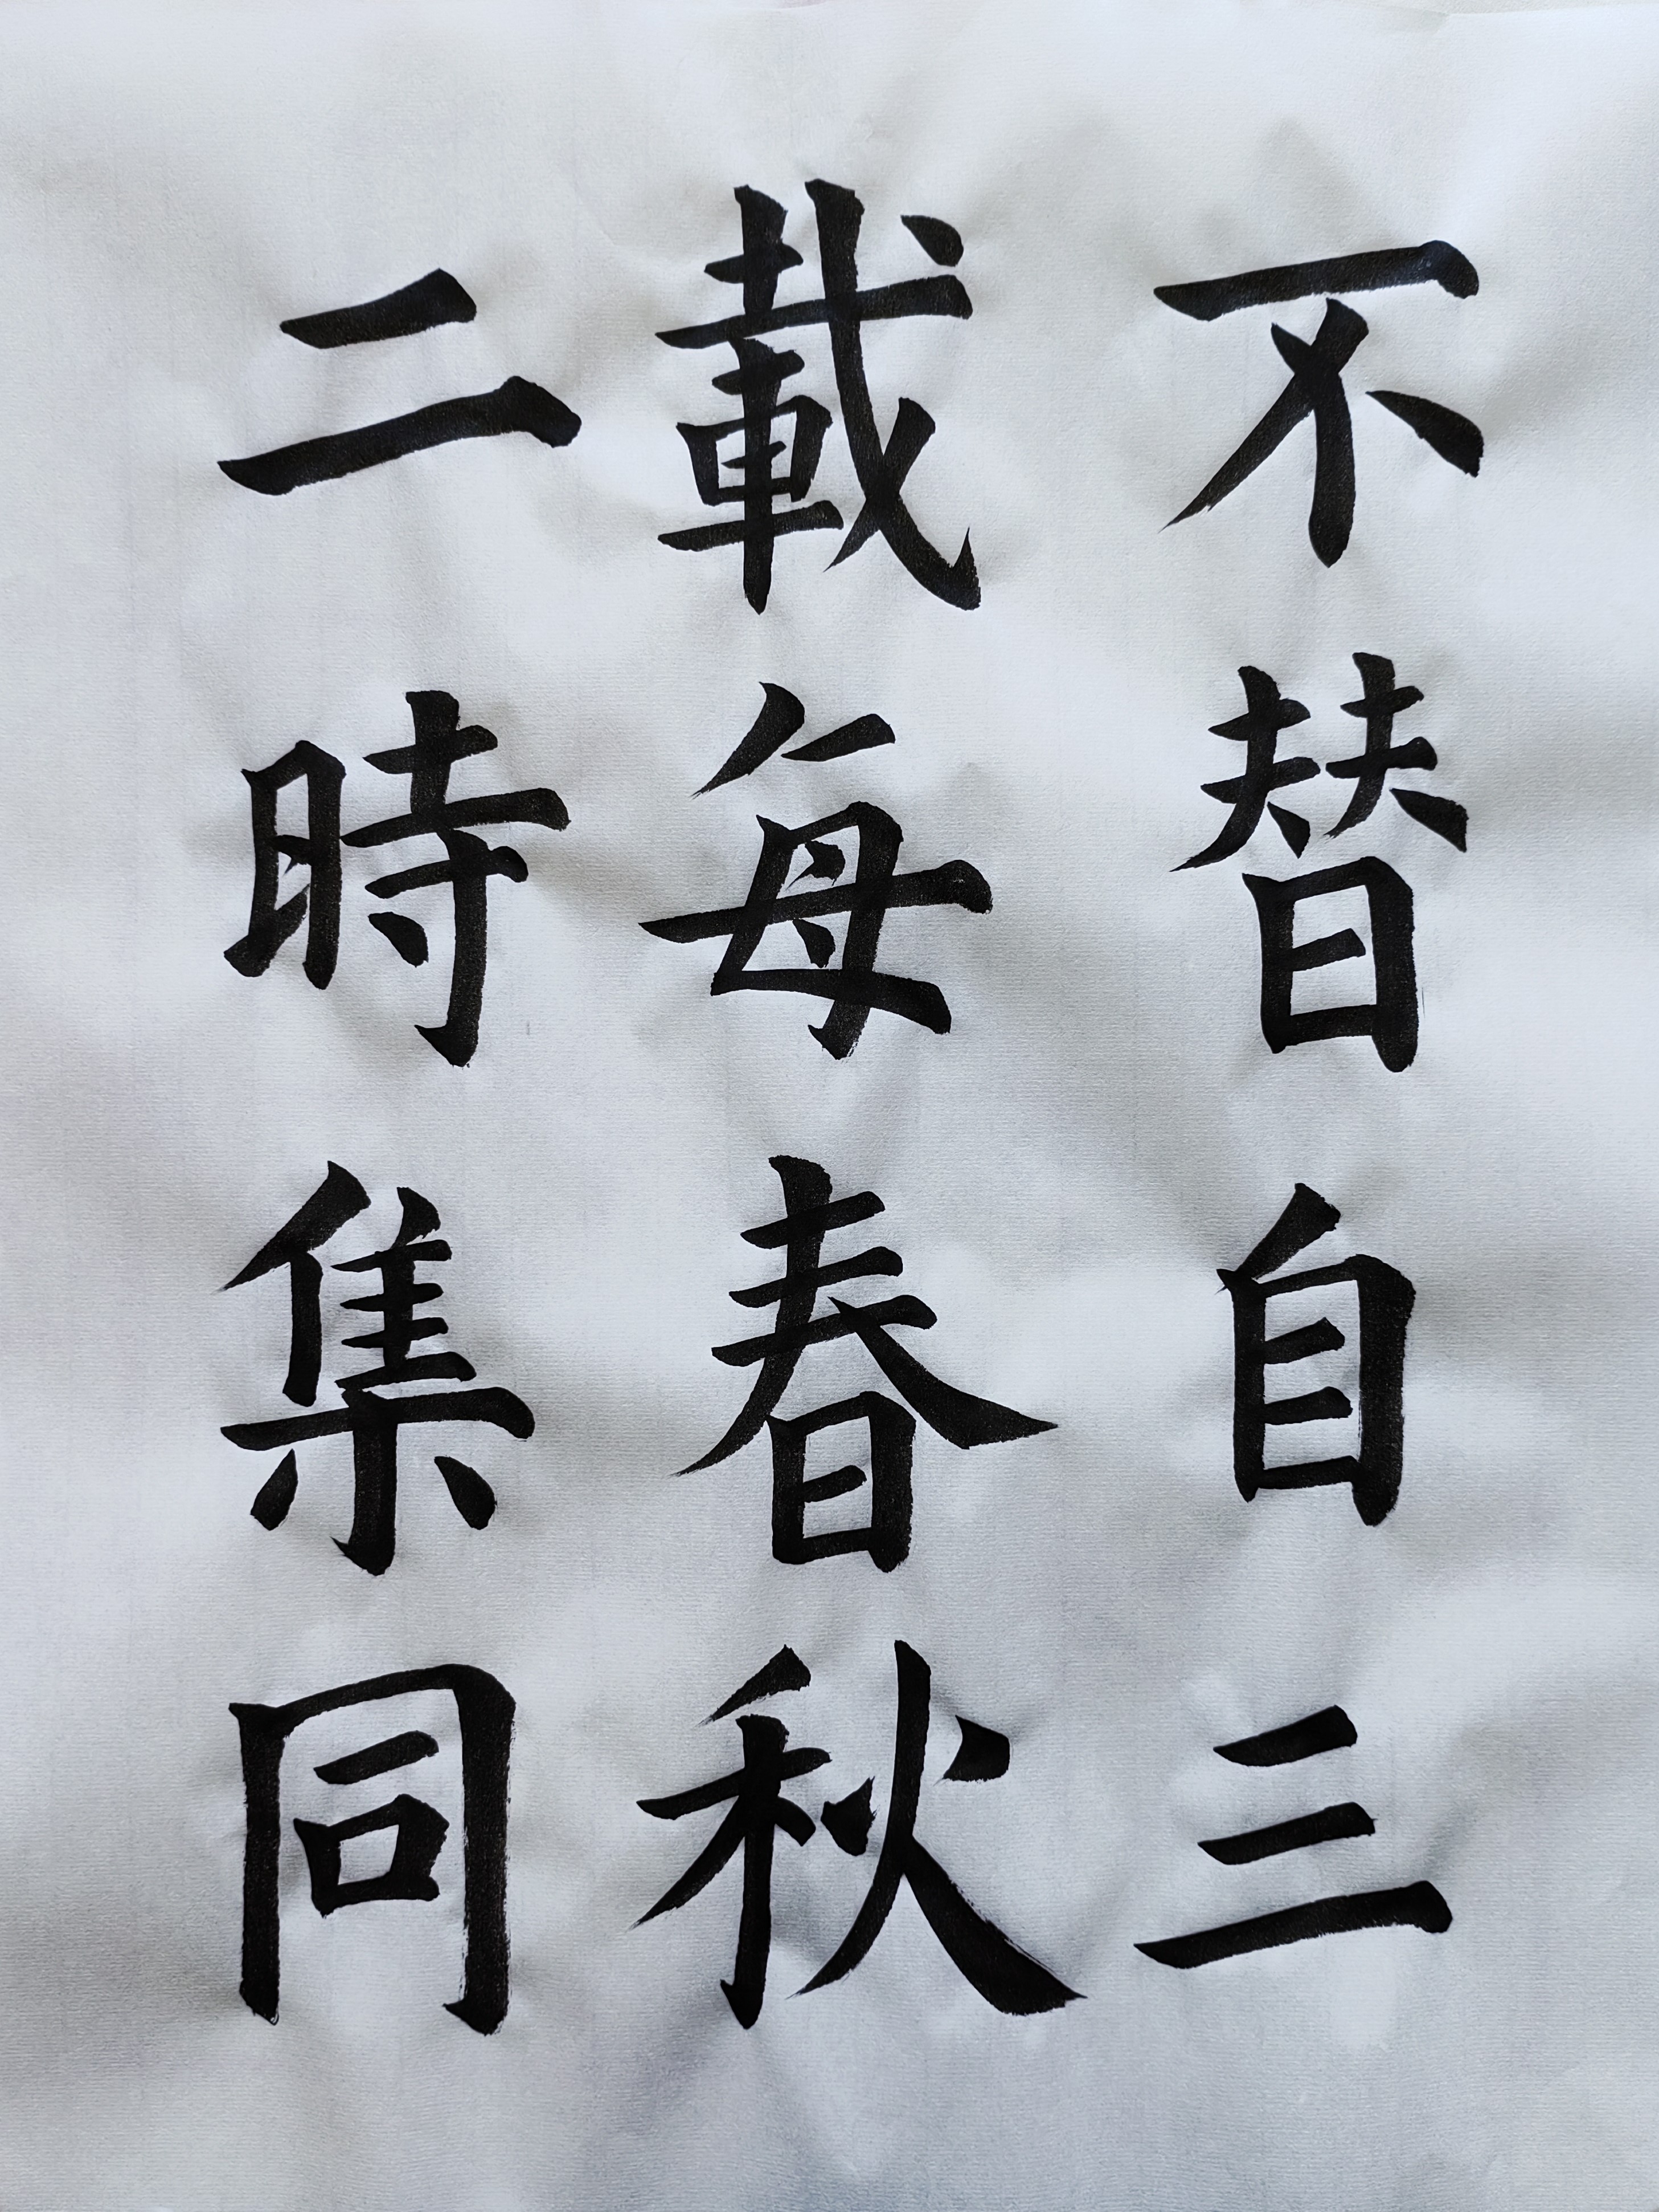 不替自三
載每春秋
二時集同